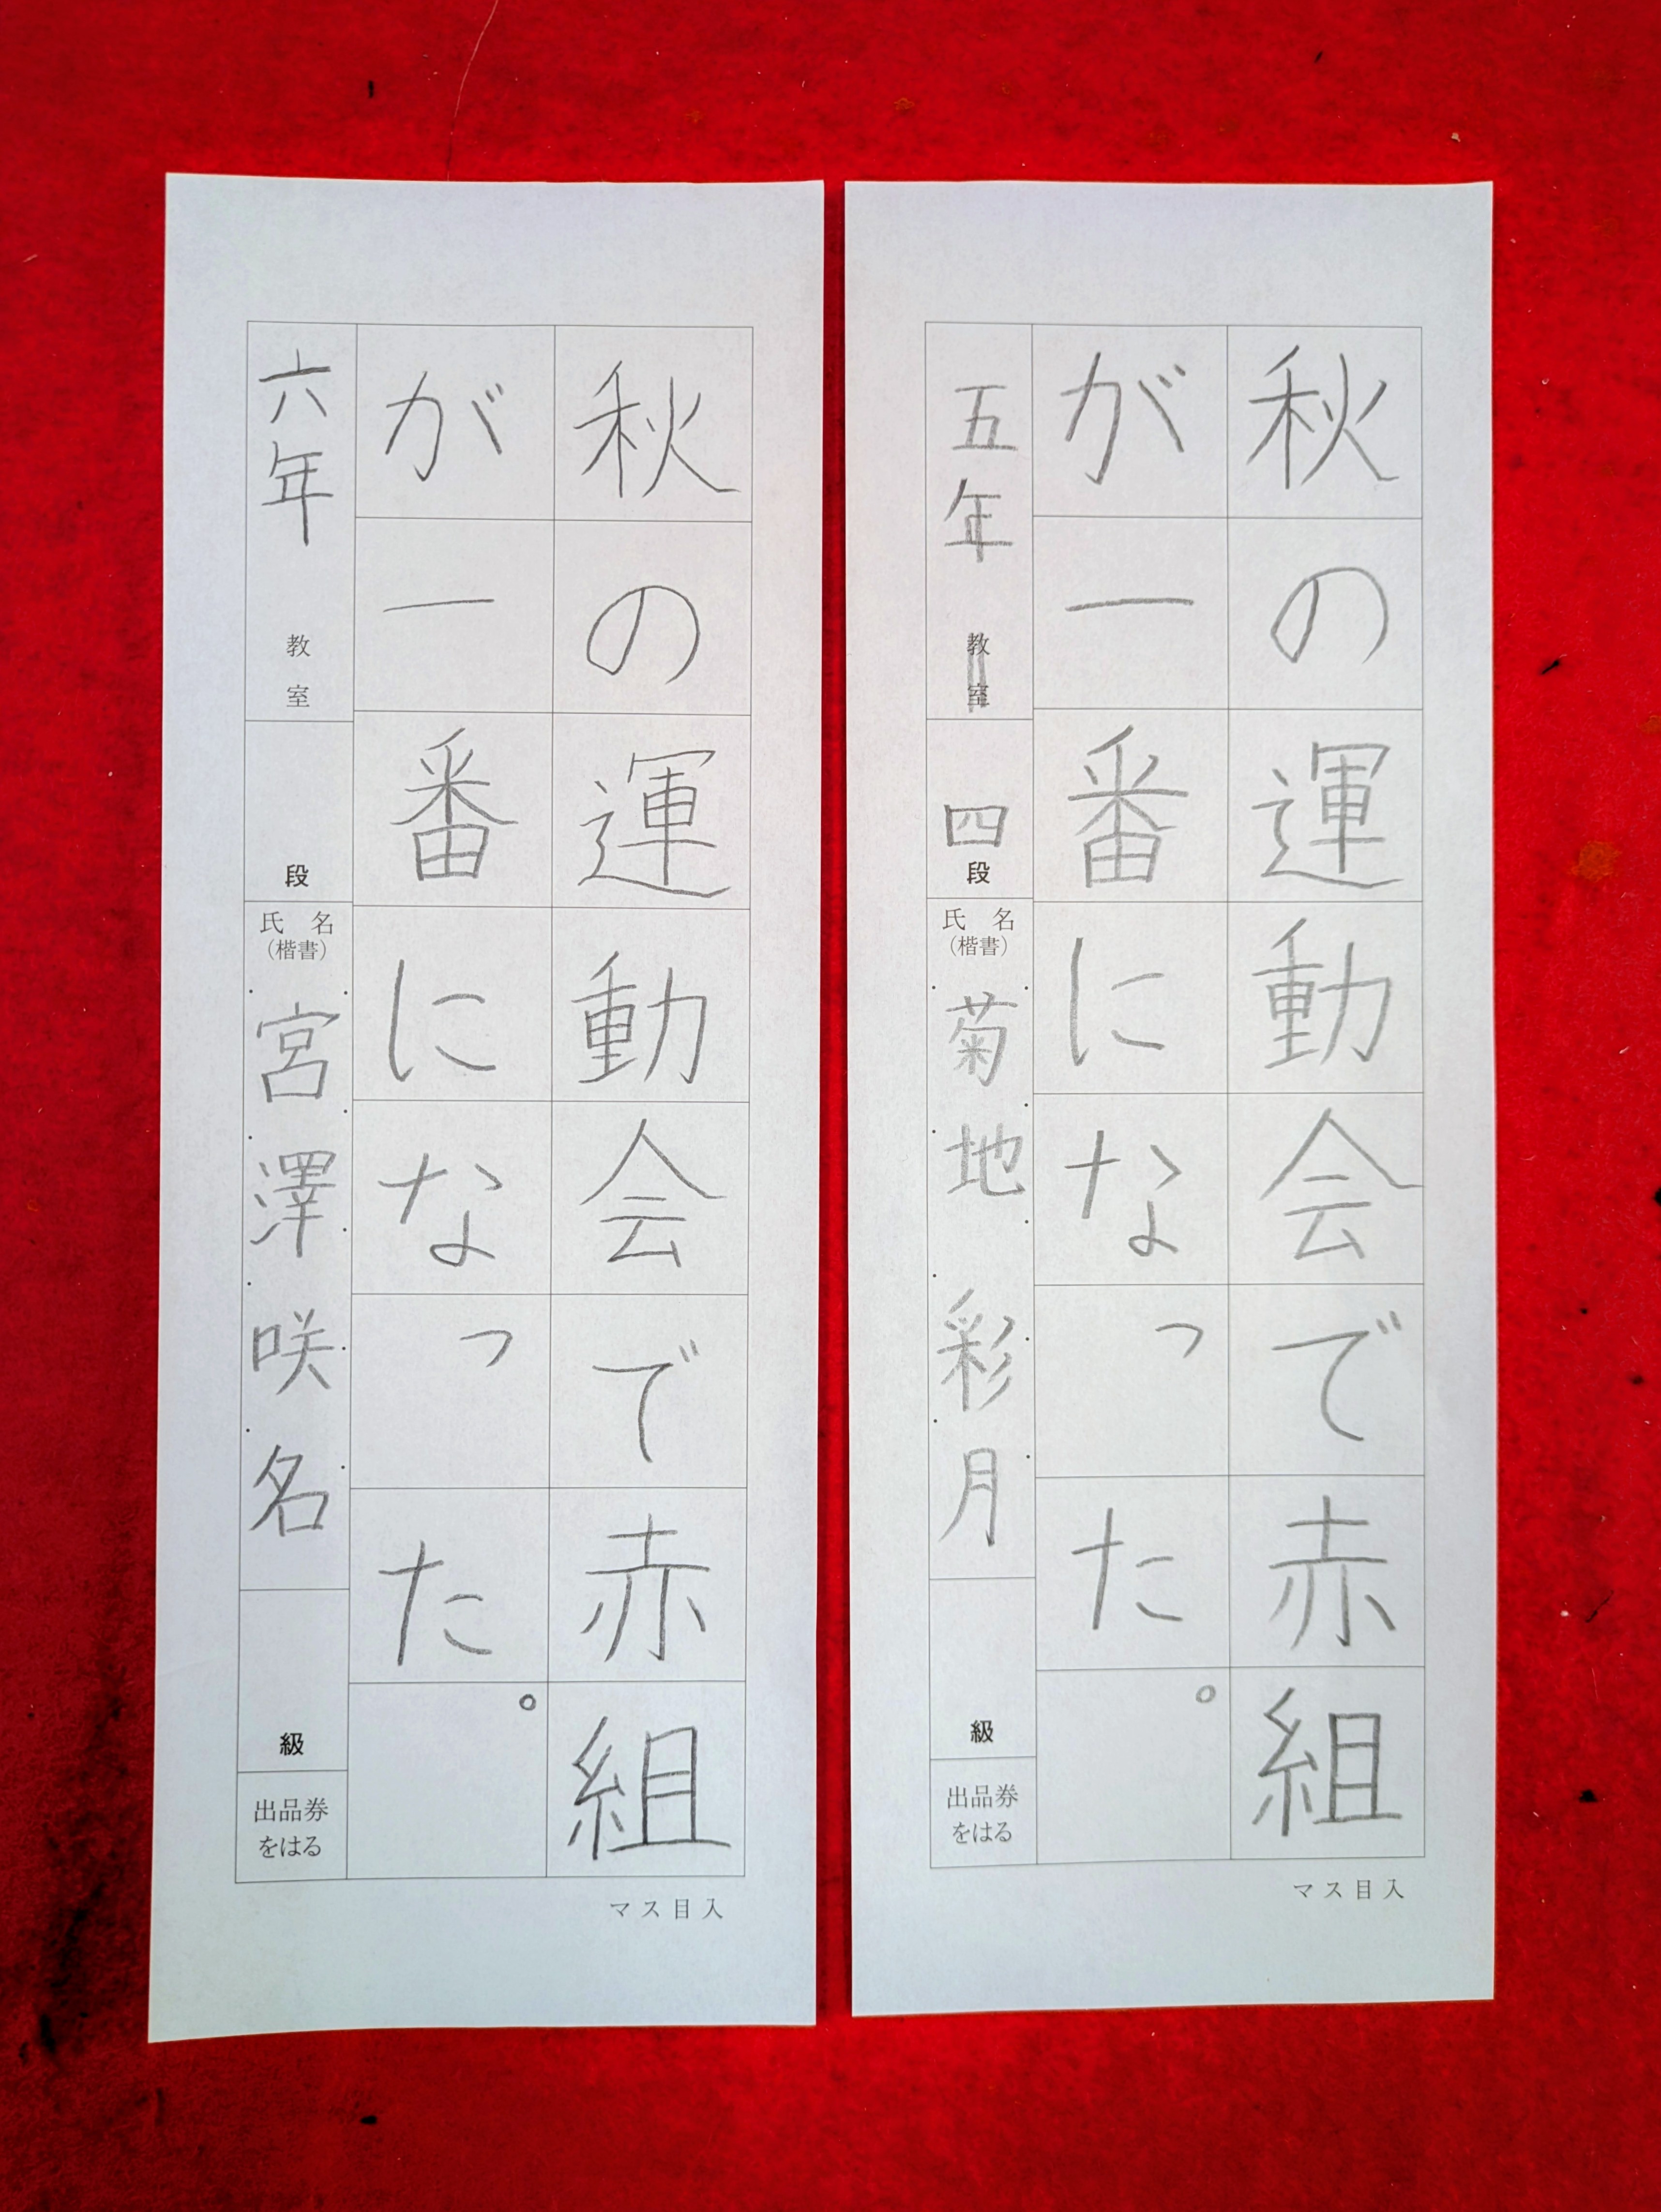 秋の運動会で赤組
が一番になった。
五年 教室 四段 氏名(楷書) 菊地彩月 級 出品券をはる
マス目入
秋の運動会で赤組
が一番になった。
六年 教室 段 氏名(楷書) 宮澤咲名 級 出品券をはる
マス目入